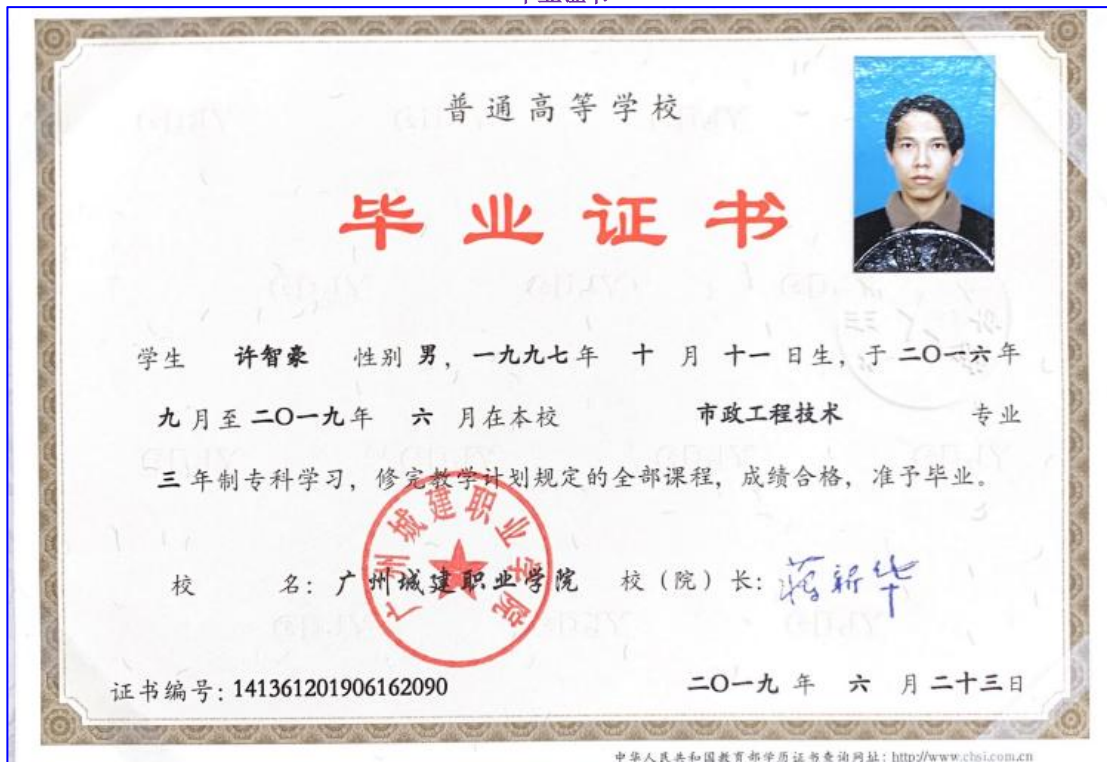 普通高等学校
毕业证书
学生 许智豪 性别 男，一九九七年 十 月 十一 日生，于 二〇一六年
九 月至 二〇一九年 六 月在本校 市政工程技术 专业
三 年制专科学习，修完教学计划规定的全部课程，成绩合格，准予毕业。
广州城建职业学院
校 名：广州城建职业学院 校（院）长：蒋新华
证书编号：141361201906162090
二〇一九 年 六 月 二十三日
中华人民共和国教育部学历证书查询网址：http://www.chsi.com.cn